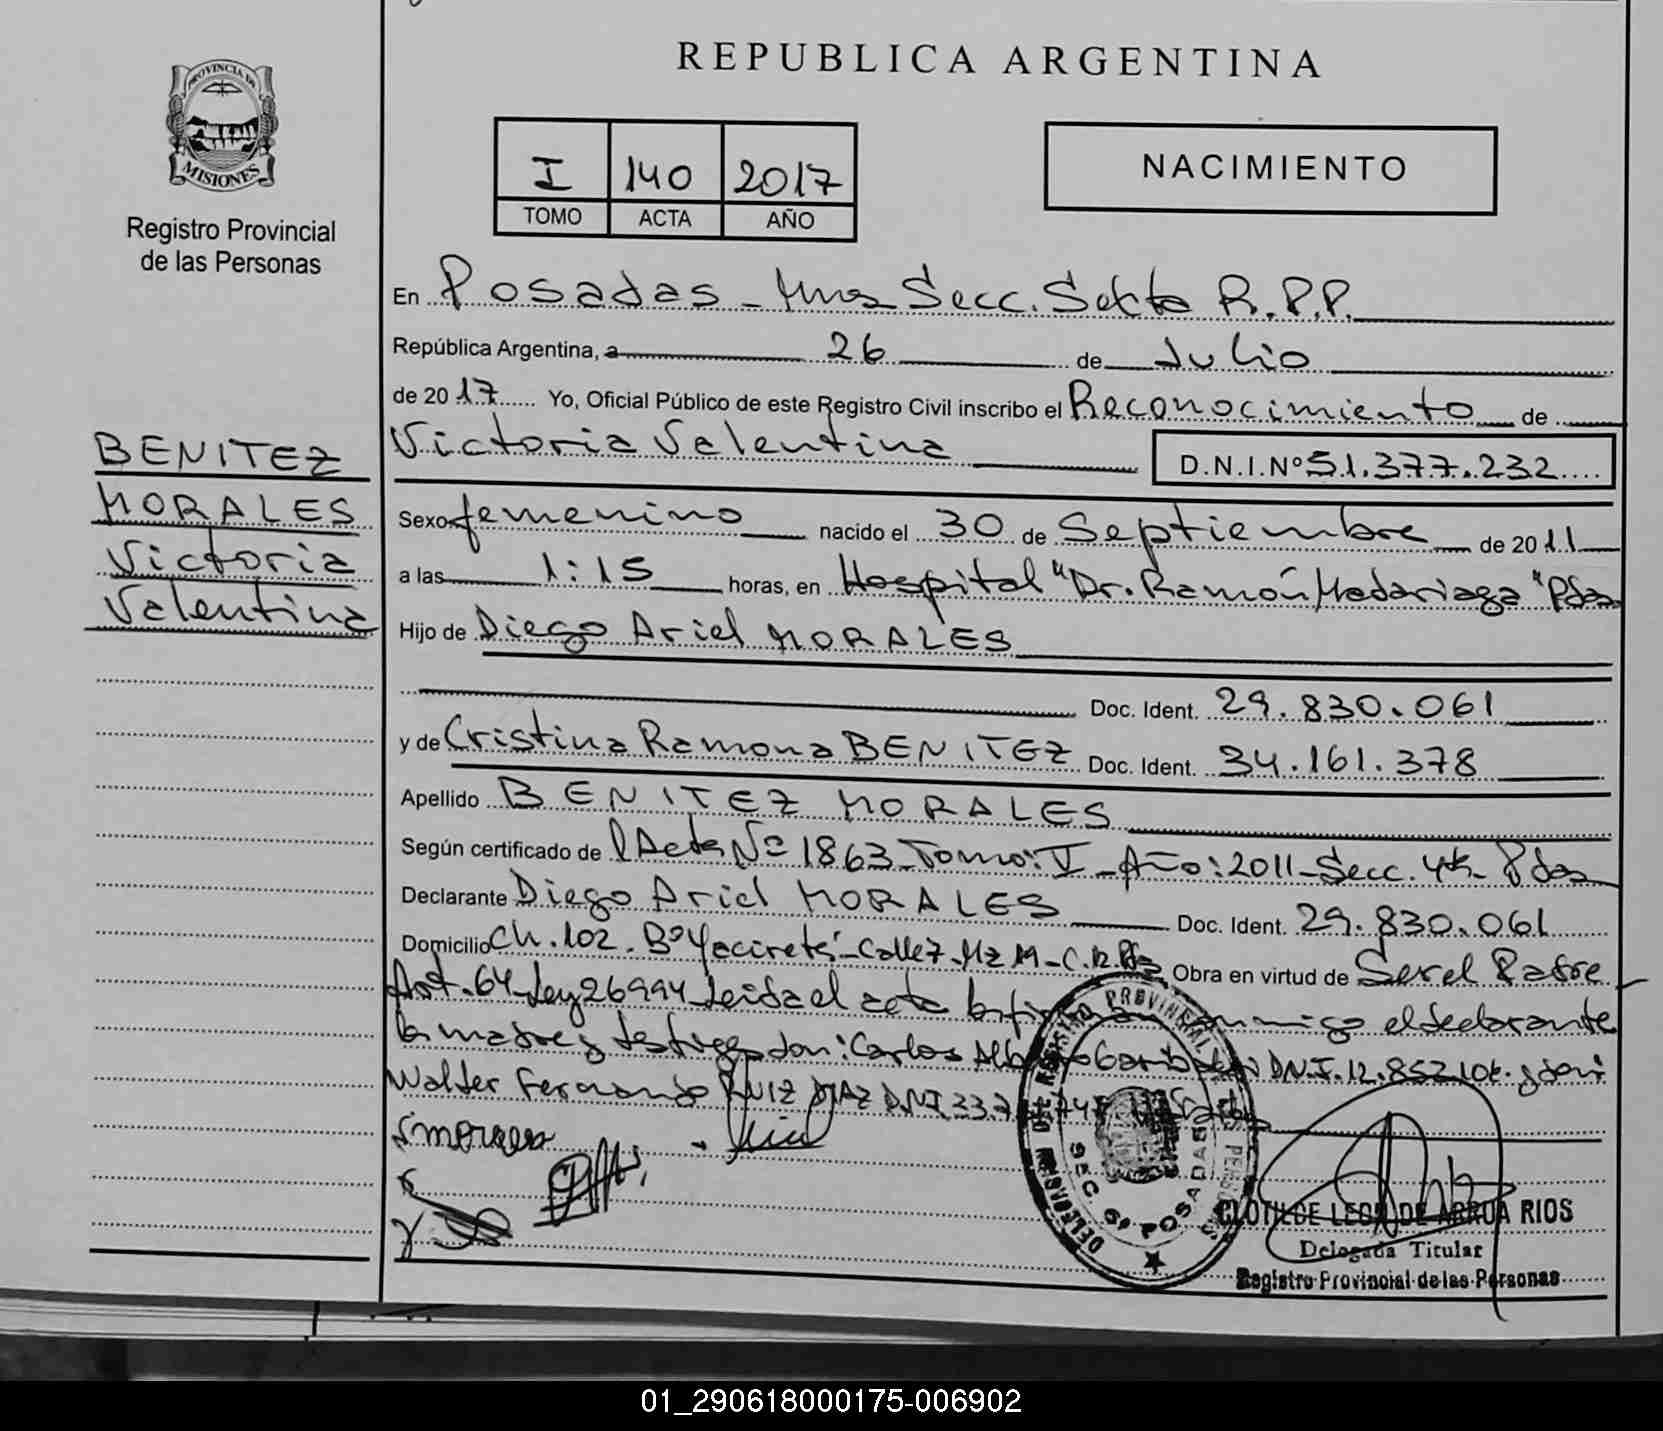 REPUBLICA ARGENTINA
PROVINCIA DE
MISIONES
Registro Provincial
de las Personas
I 140 2017
TOMO ACTA AÑO
NACIMIENTO
En Posadas - Mnes Secc. Sexta R.P.P.
República Argentina, a 26 de Julio
de 2017 Yo, Oficial Público de este Registro Civil inscribo el Reconocimiento de
Victoria Valentina D.N.I.Nº 51.377.232
BENITEZ
MORALES
Victoria
Valentina
Sexo femenino nacido el 30 de Septiembre de 2011
a las 1:15 horas, en Hospital "Dr. Ramón Madariaga" Pdas
Hijo de Diego Ariel MORALES
Doc. Ident. 29.830.061
y de Cristina Ramona BENITEZ Doc. Ident. 34.161.378
Apellido BENITEZ MORALES
Según certificado de l Acta Nº 1863 - Tomo: V - Año: 2011 - Secc. 4ta Pdas
Declarante Diego Ariel MORALES Doc. Ident. 29.830.061
Domicilio Ch. 102. Bº Yacireta - Calle 7 - Mz M - Obra en virtud de Ser el Padre
Art. 64 Ley 26994 Leida el acta la conmigo el declarante
la madre y testigos don: Carlos D.N.I. 12.852.10 y don:
Walter Fernando RUIZ DIAZ D.N.I. 33.7
DELEGACION DEL REGISTRO PROVINCIAL DE LAS PERSONAS
SEC. 6ª POSADAS
CLOTILDE LEON DE ARRUA RIOS
Delegada Titular
Registro Provincial de las Personas
01_290618000175-006902